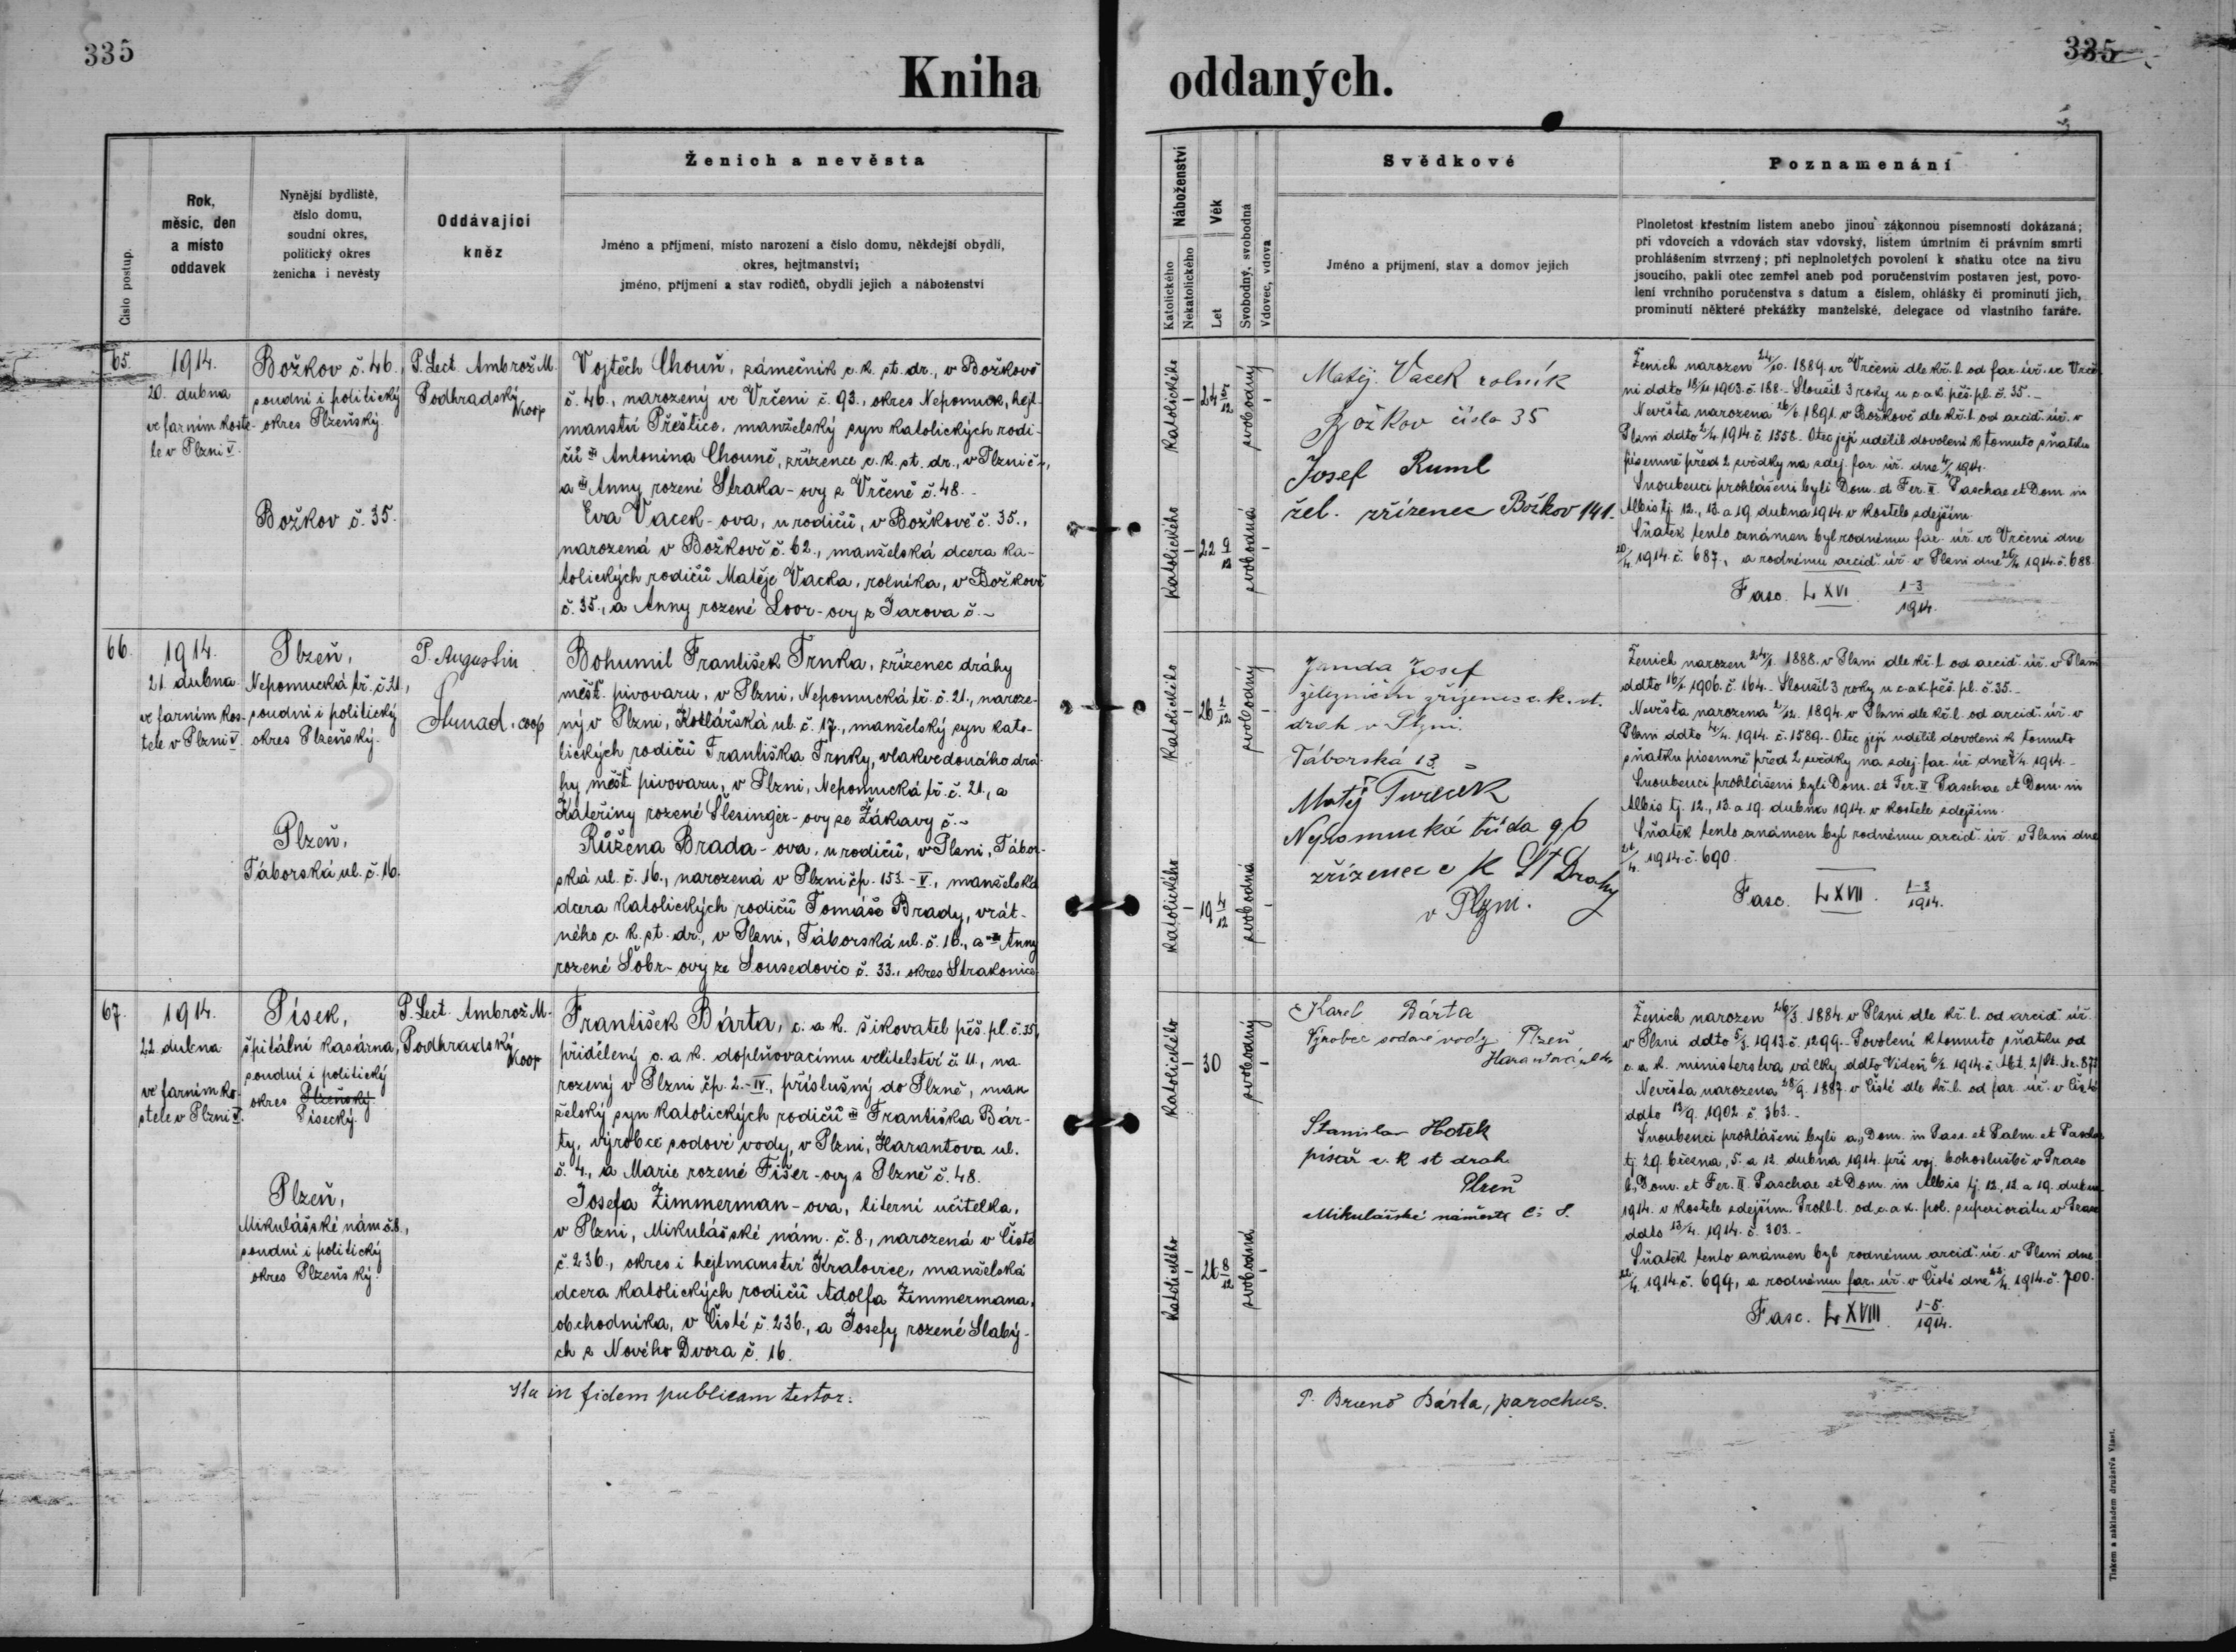 335
335
Kniha oddaných.
Číslo postup.
Rok,
měsíc, den
a místo
oddavek
Nynější bydliště,
číslo domu,
soudní okres,
politický okres
ženicha i nevěsty
Oddávající
kněz
Ženich a nevěsta
Jméno a příjmení, místo narození a číslo domu, někdejší obydlí,
okres, hejtmanství;
jméno, příjmení a stav rodičů, obydlí jejich a náboženství
Náboženství
Katolického
Nekatolického
Věk
Let
Svobodný, svobodná
Vdovec, vdova
Svědkové
Jméno a příjmení, stav a domov jejich
Poznamenání
Plnoletost křestním listem anebo jinou zákonnou písemností dokázaná;
při vdovcích a vdovách stav vdovský, listem úmrtním či právním smrti
prohlášením stvrzený; při neplnoletých povolení k sňatku otce na živu
jsoucího, pakli otec zemřel aneb pod poručenstvím postaven jest, povo-
lení vrchního poručenstva s datum a číslem, ohlášky či prominutí jich,
prominutí některé překážky manželské, delegace od vlastního faráře.
65.
1914.
20. dubna
ve farním koste-
le v Plzni V.
Božkov č. 46.
soudní i politický
okres Plzeňský.
Božkov č. 35.
P. Lect. Ambrož M.
Podhradský
koop
Vojtěch Chouň, zámečník c. k. st. dr., v Božkově
č. 46., narozený ve Vrčeni č. 93., okres Nepomuk, hejt-
manství Přeštice, manželský syn katolických rodi-
čů Antonína Chouně, zřízence c. k. st. dr., v Plzni č. -,
a Anny rozené Straka-ovy z Vrčeně č. 48.-
Eva Vacek-ova, u rodičů, v Božkově č. 35.,
narozená v Božkově č. 62., manželská dcera ka-
tolických rodičů Matěje Vacka, rolníka, v Božkově
č. 35., a Anny rozené Loor-ovy z Jarova č. -
Katolického
-
24
svobodný
-
Katolického
-
22 9/12
svobodná
-
Matěj Vacek rolník
Božkov číslo 35
Josef Ruml
žel. zřízenec Božkov 141.
Ženich narozen 24/10. 1889. ve Vrčeni dle kř. l. od far. úř. ve Vrče-
ni ddto 1903. č. 188.- Sloužil 3 roky u c. a k. pěš. pl. č. 35.-
Nevěsta narozena 1891. v Božkově dle kř. l. od arcid. úř. v
Plzni ddto 1914. č. 1558.- Otec její udělil dovolení k tomuto sňatku
písemně před 2 svědky na zdej. far. úř. dne 1914.
Snoubenci prohlášeni byli Dom. et Fer. II. Paschae et Dom. in
Albis tj. 12., 13. a 19. dubna 1914. v kostele zdejším.
Sňatek tento oznámen byl rodnému far. úř. ve Vrčeni dne
20/4. 1914. č. 687., a rodnému arcid. úř. v Plzni dne 1914. č. 688.
Fasc. LXVI. 1-3/1914.
66.
1914.
21. dubna
ve farním kos-
tele v Plzni V.
Plzeň,
Nepomucká tř. č. 21.,
soudní i politický
okres Plzeňský.
Plzeň,
Táborská ul. č. 16.
P. Augustin
coop
Bohumil František Trnka, zřízenec dráhy
měšť. pivovaru, v Plzni, Nepomucká tř. č. 21., naroze-
ný v Plzni, Kotlářská ul. č. 17., manželský syn kato-
lických rodičů Františka Trnky, vlakvedoucího drá-
hy měšť. pivovaru, v Plzni, Nepomucká tř. č. 21., a
Kateřiny rozené Šlesinger-ovy ze Žákavy č. -
Růžena Brada-ova, u rodičů, v Plzni, Tábor-
ská ul. č. 16., narozená v Plzni čp. 153.-V., manželská
dcera katolických rodičů Tomáše Brady, vrát-
ného c. k. st. dr., v Plzni, Táborská ul. č. 16., a Anny
rozené Šobr-ovy ze Sousedovic č. 33., okres Strakonice.
Katolického
-
26
svobodný
-
Katolického
-
19 4/12
svobodná
-
Janda Josef
železniční zřízenec c. k. st.
drah v Plzni.
Táborská 13.
Matěj Tureček
Nepomucká třída 96
zřízenec c K St Drahy
v Plzni.
Ženich narozen 1888. v Plzni dle kř. l. od arcid. úř. v Plzni
ddto 1906. č. 164.- Sloužil 3 roky u c. a k. pěš. pl. č. 35.-
Nevěsta narozena 1894. v Plzni dle kř. l. od arcid. úř. v
Plzni ddto 1914. č. 1589.- Otec její udělil dovolení k tomuto
sňatku písemně před 2 svědky na zdej. far. úř. dne 1914.-
Snoubenci prohlášeni byli Dom. et Fer. II Paschae et Dom. in
Albis tj. 12., 13. a 19. dubna 1914. v kostele zdejším.
Sňatek tento oznámen byl rodnému arcid. úř. v Plzni dne
21/4. 1914. č. 690.
Fasc. LXVII. 1-3/1914.
67.
1914.
22. dubna
ve farním ko-
stele v Plzni V.
Písek,
špitální kasárna,
soudní i politický
okres Plzeňský.
Písecký.
Plzeň,
Mikulášské nám. č. 8.,
soudní i politický
okres Plzeňský.
P. Lect. Ambrož M.
Podhradský
koop
František Bárta, c. a k. šikovatel pěš. pl. č. 35,
přidělený c. a k. doplňovacímu velitelství č. 11, na-
rozený v Plzni čp. 2.-IV., příslušný do Plzně, man-
želský syn katolických rodičů Františka Bár-
ty, výrobce sodové vody, v Plzni, Harantova ul.
č. 4., a Marie rozené Fišer-ovy z Plzně č. 48.
Josefa Zimmerman-ova, literní učitelka,
v Plzni, Mikulášské nám. č. 8., narozená v Čisté
č. 236., okres i hejtmanství Kralovice, manželská
dcera katolických rodičů Adolfa Zimmermana,
obchodníka, v Čisté č. 236., a Josefy rozené Slabý-
ch z Nového Dvora č. 16.
Katolického
-
30
svobodný
-
Katolického
-
26 8/12
svobodná
-
Karel Bárta
Výrobce sodové vody Plzeň
Harantova
Stanislav Hotek
písař c. k st drah
Plzeň
Mikulášské náměstí č: 8.
Ženich narozen 26/3. 1884. v Plzni dle kř. l. od arcid. úř.
v Plzni ddto 1913. č. 1299.- Povolení k tomuto sňatku od
c. a k. ministerstva války ddto Vídeň 1914. č. Abt. 2/
Nevěsta narozena 1887. v Čisté dle kř. l. od far. úř. v Čisté
ddto 13/9. 1902. č. 363.-
Snoubenci prohlášeni byli a, Dom. in Pass. et Palm. et Pascha
tj. 29. března, 5. a 12. dubna 1914. při voj. bohoslužbě v Praze
b, Dom. et Fer. II. Paschae et Dom. in Albis tj. 12., 13. a 19. dubna
1914. v kostele zdejším. Prohl. l. od c. a k. pol. superiorátu v Praze
ddto 13/4. 1914. č. 303.-
Sňatek tento oznámen byl rodnému arcid. úř. v Plzni dne
22/4. 1914. č. 699., a rodnému far. úř. v Čisté dne 1914. č. 700.
Fasc. LXVIII. 1-5/1914.
Ita in fidem publicam testor:
P. Bruno Bárta, parochus.
Tiskem a nákladem družstva Vlast.